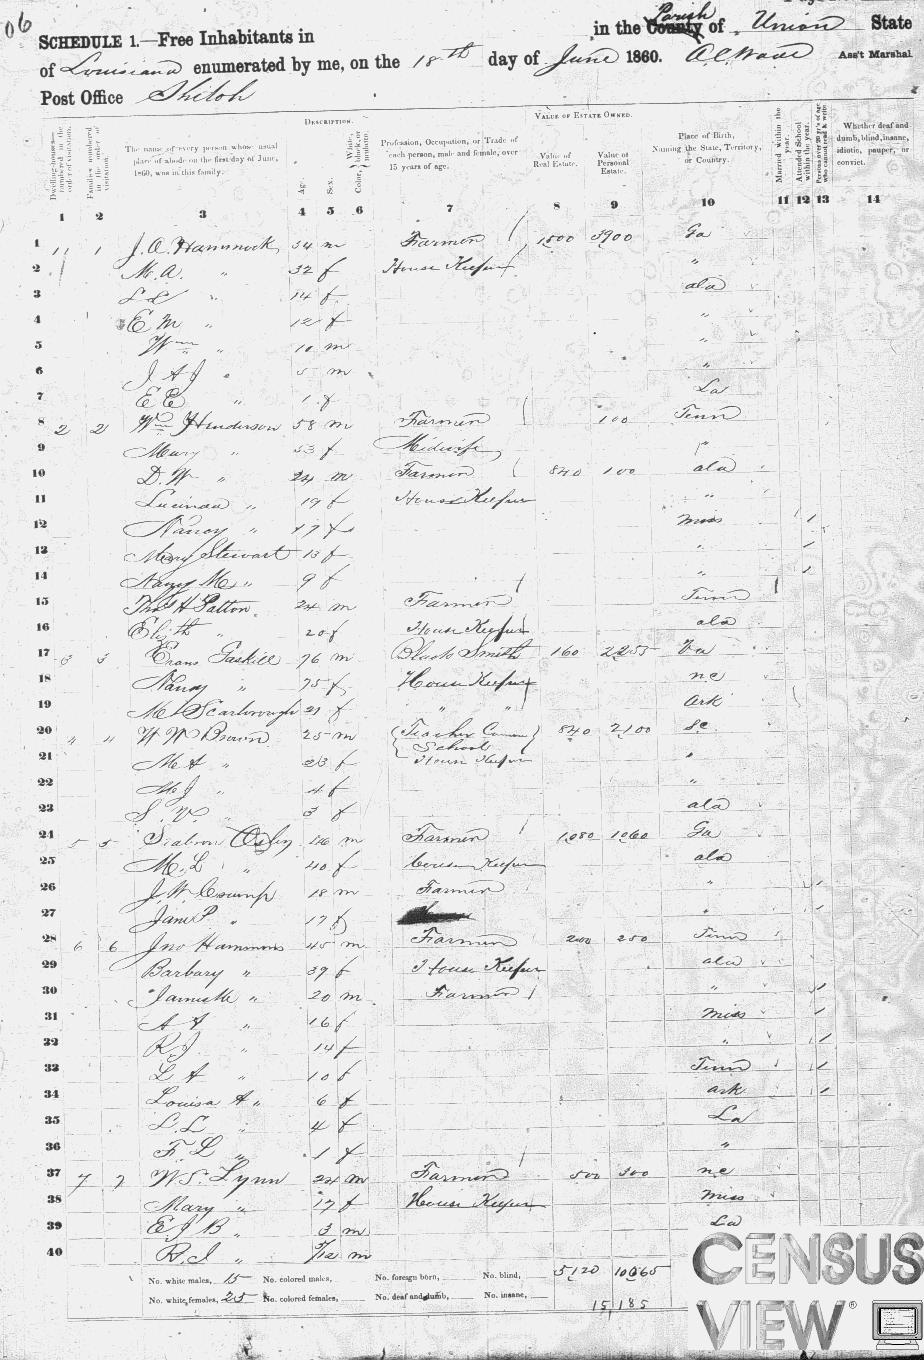 06
SCHEDULE 1.—Free Inhabitants in in the County Parish of Union State
of Louisiana enumerated by me, on the 18th day of June 1860. Ass't Marshal
Post Office Shiloh
DESCRIPTION. VALUE OF ESTATE OWNED.
Dwelling-houses—numbered in the order of visitation. Families numbered in the order of visitation. The name of every person whose usual place of abode on the first day of June, 1860, was in this family. Age. Sex. Color, White, black, or mulatto. Profession, Occupation, or Trade of each person, male and female, over 15 years of age. Value of Real Estate. Value of Personal Estate. Place of Birth, Naming the State, Territory, or Country. Married within the year. Attended School within the year. Persons over 20 y'rs of age who cannot read & write. Whether deaf and dumb, blind, insane, idiotic, pauper, or convict.
1 2 3 4 5 6 7 8 9 10 11 12 13 14
1 1 1 J. A. Hammock 34 m Farmer 1,500 3900 Ga
2 M. A. " 32 f House Keeper "
3 " 14 f ala
4 E M " 12 f "
5 Wm " 10 m "
6 J A J " 5 m "
7 E E " 1 f La
8 2 2 Wm Henderson 58 m Farmer 100 Tenn
9 Mary " 53 f Midwife "
10 D. W " 24 m Farmer 840 100 ala
11 Lucinda " 19 f House Keeper "
12 Nancy " 17 f Miss /
13 Mary Stewart 13 f " /
14 Nancy M. " 9 f " /
15 Thos H Patton 24 m Farmer Tenn /
16 Elizth " 20 f House Keeper ala
17 3 3 Evans Gaskill 76 m Black Smith 160 2255 Va
18 Nancy " 75 f House Keeper nc
19 M. Scarborough 21 f " " Ark
20 " " W W Brown 25 m Teacher Common School 840 2100 Sc
21 M A " 23 f House Keeper "
22 M J " 4 f "
23 S. V. " 3 f ala
24 5 5 Seaborn 46 m Farmer 1,080 1060 Ga
25 M. L " 40 f House Keeper ala
26 J. W. Crump 18 m Farmer " /
27 Jane P. " 17 f " /
28 6 6 Jno Hammons 45 m Farmer 200 250 Tenn
29 Barbary " 39 f House Keeper ala
30 " 20 m Farmer " /
31 A A " 16 f Miss /
32 R. J. " 14 f " /
33 L A " 10 f Tenn /
34 Louisa A " 6 f ark /
35 L. L " 4 f La
36 F. L " 1 f "
37 7 7 W S. Lynn 24 m Farmer 500 300 nc
38 Mary " 17 f House Keeper Miss
39 E J B " 3 m La
40 R. J " /12 m
No. white males, 15 No. colored males, No. foreign born, No. blind, 5120 10065
No. white females, 25 No. colored females, No. deaf and dumb, No. insane,
15,185
CENSUS
VIEW®